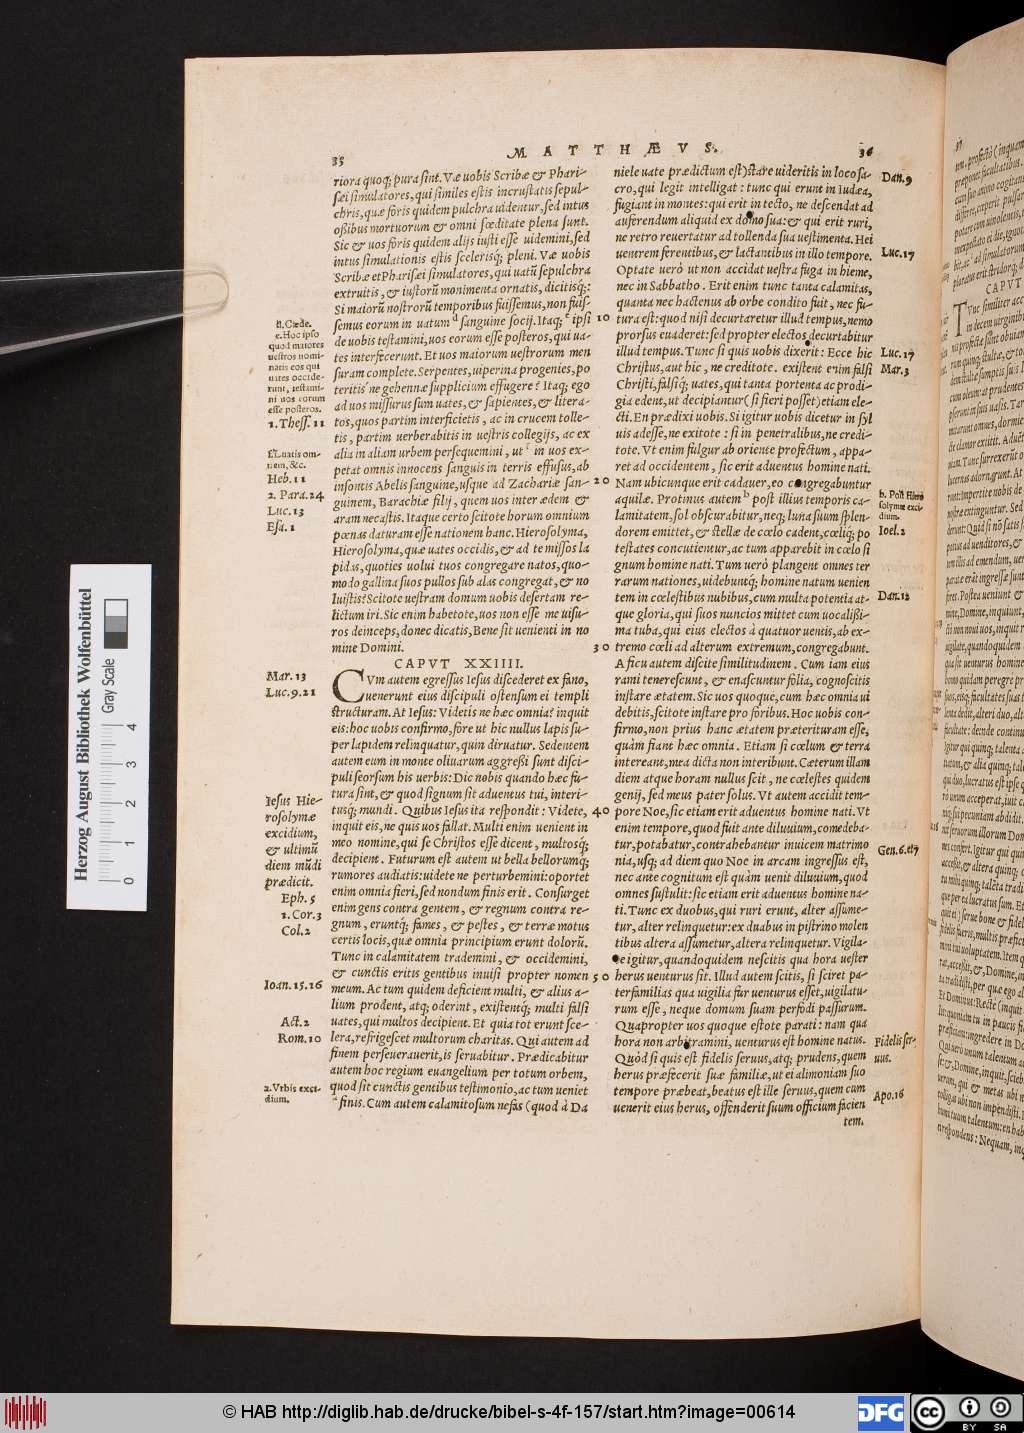 35
MATTHÆVS.
36
riora quoq; pura sint. Væ uobis Scribæ & Phari-
sæi simulatores, qui similes estis incrustatis sepul-
chris, quæ foris quidem pulchra uidentur, sed intus
oßibus mortuorum & omni fœditate plena sunt.
Sic & uos foris quidem alijs iusti esse uidemini, sed
intus simulationis estis scelerisq; pleni. Væ uobis
Scribæ et Pharisæi simulatores, qui uatũ sepulchra
extruitis, & iustorũ monimenta ornatis, dicitisq;:
Si maiorũ nostrorũ temporibus fuissemus, non fuis-
semus eorum in uatum d sanguine socij. Itaq; e ipsi
de uobis testamini, uos eorum esse posteros, qui ua-
tes interfecerunt. Et uos maiorum uestrorum men
suram complete. Serpentes, uiperina progenies, po
teritis´ne gehennæ supplicium effugere? Itaq; ego
ad uos missurus sum uates, & sapientes, & litera-
tos, quos partim interficietis, ac in crucem tolle-
tis, partim uerberabitis in uestris collegijs, ac ex
alia in aliam urbem persequemini, ut f in uos ex-
petat omnis innocens sanguis in terris effusus, ab
insontis Abelis sanguine, usque ad Zachariæ san-
guinem, Barachiæ filij, quem uos inter ædem &
aram necastis. Itaque certo scitote horum omnium
pœnas daturam esse nationem hanc. Hierosolyma,
Hierosolyma, quæ uates occidis, & ad te missos la
pidas, quoties uolui tuos congregare natos, quo-
modo gallina suos pullos sub alas congregat, & no
luistis? Scitote uestram domum uobis desertam re-
lictum iri. Sic enim habetote, uos non esse me uisu-
ros deinceps, donec dicatis, Bene sit uenienti in no
mine Domini.
CAPVT XXIIII.
CVm autem egressus Iesus discederet ex fano,
uenerunt eius discipuli ostensum ei templi
structuram. At Iesus: Videtis ne hæc omnia? inquit
eis: hoc uobis confirmo, fore ut hic nullus lapis su-
per lapidem relinquatur, quin diruatur. Sedentem
autem eum in monte oliuarum aggreßi sunt disci-
puli seorsum his uerbis: Dic nobis quando hæc fu-
tura sint, & quod signum sit aduentus tui, interi-
tusq; mundi. Quibus Iesus ita respondit: Videte,
inquit eis, ne quis uos fallat. Multi enim uenient in
meo nomine, qui se Christos esse dicent, multosq;
decipient. Futurum est autem ut bella bellorumq;
rumores audiatis: uidete ne perturbemini: oportet
enim omnia fieri, sed nondum finis erit. Consurget
enim gens contra gentem, & regnum contra re-
gnum, eruntq; fames, & pestes, & terræ motus
certis locis, quæ omnia principium erunt dolorũ.
Tunc in calamitatem trademini, & occidemini,
& cunctis eritis gentibus inuisi propter nomen
meum. Ac tum quidem deficient multi, & alius a-
lium prodent, atq; oderint, existentq; multi falsi
uates, qui multos decipient. Et quia tot erunt sce-
lera, refrigescet multorum charitas. Qui autem ad
finem perseuerauerit, is seruabitur. Prædicabitur
autem hoc regium euangelium per totum orbem,
quod sit cunctis gentibus testimonio, ac tum ueniet
a finis. Cum autem calamitosum nefas (quod à Da
d. Cæde.
e. Hoc ipso
quod maiores
uestros nomi-
natis eos qui
uates occide-
runt, testami-
ni uos eorum
esse posteros.
1. Thess. 11
f. uatis om-
nem, &c.
Heb. 11
2. Para. 24
Luc. 13
Esa. 1
Mar. 13
Luc. 9.21
Iesus Hie-
rosolymæ
excidium,
& ultimũ
diem mũdi
prædicit.
Eph. 5
1. Cor. 3
Col. 2
Ioan. 15.16
Act. 2
Rom. 10
a. Vrbis exci-
dium.
10
20
30
40
50
niele uate prædictum est) stare uideritis in loco sa-
cro, qui legit intelligat: tunc qui erunt in Iudæa,
fugiant in montes: qui erit in tecto, ne descendat ad
auferendum aliquid ex domo sua: & qui erit ruri,
ne retro reuertatur ad tollenda sua uestimenta. Hei
uentrem ferentibus, & lactantibus in illo tempore.
Optate uerò ut non accidat uestra fuga in hieme,
nec in Sabbatho. Erit enim tunc tanta calamitas,
quanta nec hactenus ab orbe condito fuit, nec fu-
tura est: quod nisi decurtaretur illud tempus, nemo
prorsus euaderet: sed propter electos decurtabitur
illud tempus. Tunc si quis uobis dixerit: Ecce hic
Christus, aut hic, ne creditote. existent enim falsi
Christi, falsiq; uates, qui tanta portenta ac prodi-
gia edent, ut decipiantur (si fieri posset) etiam ele-
cti. En prædixi uobis. Si igitur uobis dicetur in syl
uis adesse, ne exitote: si in penetralibus, ne credi-
tote. Vt enim fulgur ab oriente profectum, appa-
ret ad occidentem, sic erit aduentus homine nati.
Nam ubicunque erit cadauer, eo congregabuntur
aquilæ. Protinus autem b post illius temporis ca-
lamitatem, sol obscurabitur, neq; luna suum splen-
dorem emittet, & stellæ de cœlo cadent, cœliq; po
testates concutientur, ac tum apparebit in cœlo si
gnum homine nati. Tum uerò plangent omnes ter
rarum nationes, uidebuntq; homine natum uenien
tem in cœlestibus nubibus, cum multa potentia at-
que gloria, qui suos nuncios mittet cum uocalißi-
ma tuba, qui eius electos à quatuor uentis, ab ex-
tremo cœli ad alterum extremum, congregabunt.
A ficu autem discite similitudinem. Cum iam eius
rami tenerescunt, & enascuntur folia, cognoscitis
instare æstatem. Sic uos quoque, cum hæc omnia ui
debitis, scitote instare pro foribus. Hoc uobis con-
firmo, non prius hanc ætatem præterituram esse,
quàm fiant hæc omnia. Etiam si cœlum & terra
intereant, mea dicta non interibunt. Cæterum illam
diem atque horam nullus scit, ne cœlestes quidem
genij, sed meus pater solus. Vt autem accidit tem-
pore Noe, sic etiam erit aduentus homine nati. Vt
enim tempore, quod fuit ante diluuium, comedeba-
tur, potabatur, contrahebantur inuicem matrimo
nia, usq; ad diem quo Noe in arcam ingressus est,
nec ante cognitum est quàm uenit diluuium, quod
omnes sustulit: sic etiam erit aduentus homine na-
ti. Tunc ex duobus, qui ruri erunt, alter assume-
tur, alter relinquetur: ex duabus in pistrino molen
tibus altera assumetur, altera relinquetur. Vigila-
te igitur, quandoquidem nescitis qua hora uester
herus uenturus sit. Illud autem scitis, si sciret pa-
terfamilias qua uigilia fur uenturus esset, uigilatu-
rum esse, neque domum suam perfodi passurum.
Quapropter uos quoque estote parati: nam qua
hora non arbitramini, uenturus est homine natus.
Quòd si quis est fidelis seruus, atq; prudens, quem
herus præfecerit suæ familiæ, ut ei alimoniam suo
tempore præbeat, beatus est ille seruus, quem cum
uenerit eius herus, offenderit suum officium facien
tem.
Dan. 9
Luc. 17
Luc. 17
Mar. 3
b. Post Hiero
solymæ exci-
dium.
Ioel. 2
Dan. 12
Gen. 6. et 7
Fidelis ser-
uus.
Apo. 16
37
CAPVT
Herzog August Bibliothek Wolfenbüttel
Gray Scale
0 1 2 3 4
© HAB http://diglib.hab.de/drucke/bibel-s-4f-157/start.htm?image=00614
DFG
cc BY SA